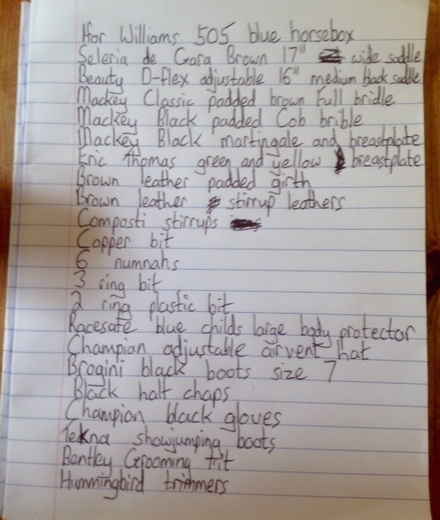 Ifor Williams 505 blue horsebox
Seleria de Gara Brown 17" wide saddle
Beauty D-flex adjustable 16" medium back saddle
Mackey Classic padded brown Full bridle
Mackey Black padded Cob brible
Mackey Black martingale and breastplate
Eric Thomas green and yellow breastplate
Brown leather padded girth
Brown leather stirrup leathers
Composti stirrups
Copper bit
6 numnahs
3 ring bit
2 ring plastic bit
Racesafe blue childs large body protector
Champian adjustable airvent hat
Brogini black boots size 7
Black half chaps
Champian black gloves
Tekna showjumping boots
Bentley Grooming
Hummingbird trimmers